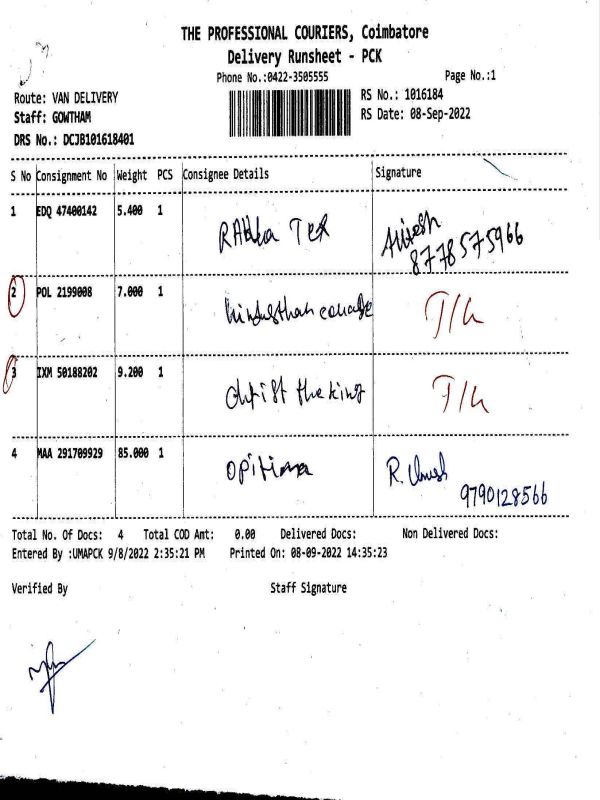 THE PROFESSIONAL COURIERS, Coimbatore
Delivery Runsheet - PCK
Phone No.:0422-3505555 Page No.:1
Route: VAN DELIVERY RS No.: 1016184
Staff: GOWTHAM RS Date: 08-Sep-2022
DRS No.: DCJB101618401
S No Consignment No Weight PCS Consignee Details Signature
1 EDQ 47400142 5.400 1 RAKKa TEX
8778575966
2 POL 2199008 7.000 1 hindusthan college T/h
3 IXM 50188202 9.200 1 christ the king T/h
4 MAA 291709929 85.000 1 opitima R.
9790128566
Total No. Of Docs: 4 Total COD Amt: 0.00 Delivered Docs: Non Delivered Docs:
Entered By :UMAPCK 9/8/2022 2:35:21 PM Printed On: 08-09-2022 14:35:23
Verified By Staff Signature